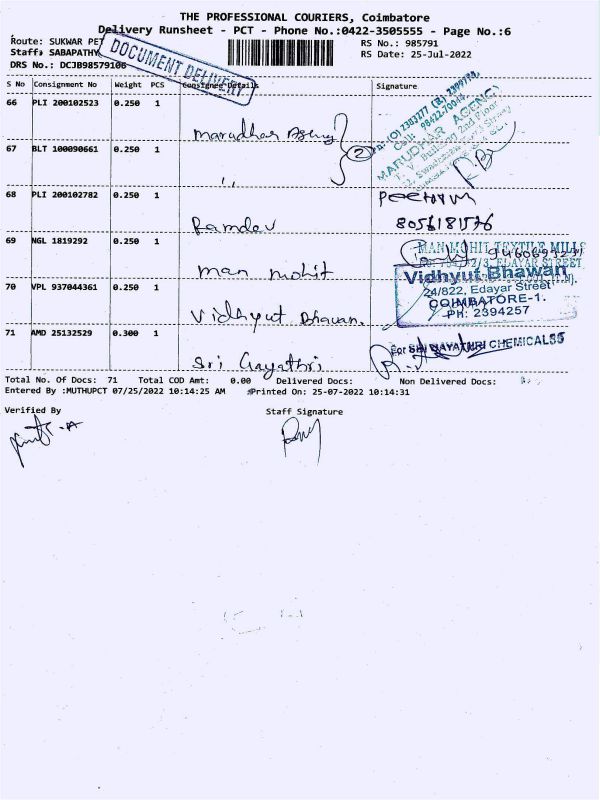 THE PROFESSIONAL COURIERS, Coimbatore
Delivery Runsheet - PCT - Phone No.:0422-3505555 - Page No.:6
Route: SUKWAR PET
RS No.: 985791
Staff: SABAPATHY
RS Date: 25-Jul-2022
DRS No.: DCJB98579106
DOCUMENT DELIVERY
S No Consignment No Weight PCS Consignee Details Signature
66 PLI 200102523 0.250 1
Marudhar Agency
(O) 2383277 (R) 2399784
Cell: 98422-70044
MARUDHAR AGENCY
2nd Floor
67 BLT 100090661 0.250 1
2
,,
68 PLI 200102782 0.250 1
Ramdev
8056181576
69 NGL 1819292 0.250 1
man mohit
MAN MOHIT TEXTILE MILLS
EDAYAR STREET
70 VPL 937044361 0.250 1
Vidhyut Bhavan.
Vidhyut Bhawan
24/822, Edayar Street
COIMBATORE-1.
PH: 2394257
71 AMD 25132529 0.300 1
Sri Gayathri
For SRI GAYATHRI CHEMICALSS
Total No. Of Docs: 71 Total COD Amt: 0.00 Delivered Docs: Non Delivered Docs:
Entered By :MUTHUPCT 07/25/2022 10:14:25 AM Printed On: 25-07-2022 10:14:31
Verified By Staff Signature